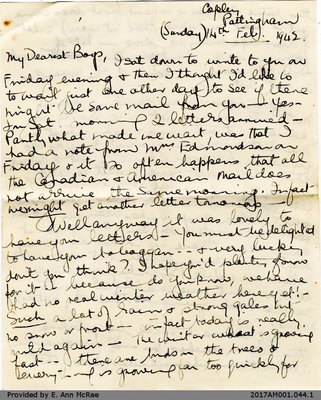 Copley
Pattingham
(Sunday) 14th Feb. 1942.
My Dearest Boys, I sat down to write to you on
Friday evening & then I thought I'd like to
to wait just one other day to see if there
might be some mail from you — Yes —
morning 2 letters arrived —
Partly what made me wait, was that I
had a note from Mrs Edmondson on
Friday & it so often happens that all
the Canadian & American mail does
not arrive the same morning. In fact
might get another letter tomorrow
Well anyway it was lovely to
have your letters — You must be delighted
to have your toboggan — & very lucky
don't you think? I hope you'd plenty snow
for it — because do you know, we have
had no real winter weather here yet! —
Such a lot of rain & strong gales but
no snow or frost — in fact today is really
mild again — The winter wheat is growing
fast — there are buds on the trees &
every—ng is growing far too quickly for
Provided by E. Ann McRae
2017AM001.044.1